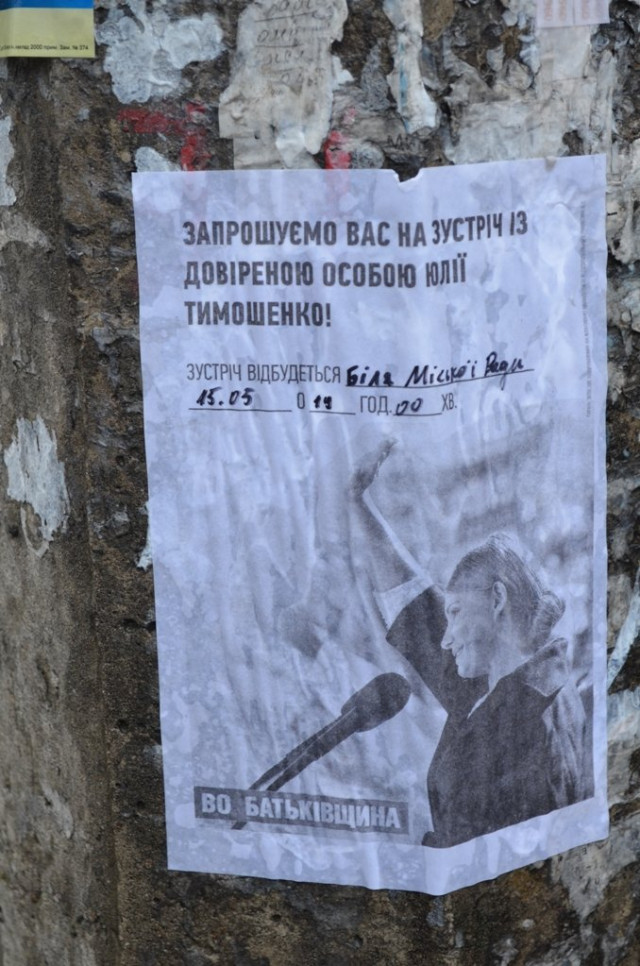 наклад 2000 прим. Зам. № 274
ЗАПРОШУЄМО ВАС НА ЗУСТРІЧ ІЗ
ДОВІРЕНОЮ ОСОБОЮ ЮЛІЇ
ТИМОШЕНКО!
ЗУСТРІЧ ВІДБУДЕТЬСЯ Біля Міської Ради
15.05 О 19 ГОД. 00 ХВ.
ВО БАТЬКІВЩИНА